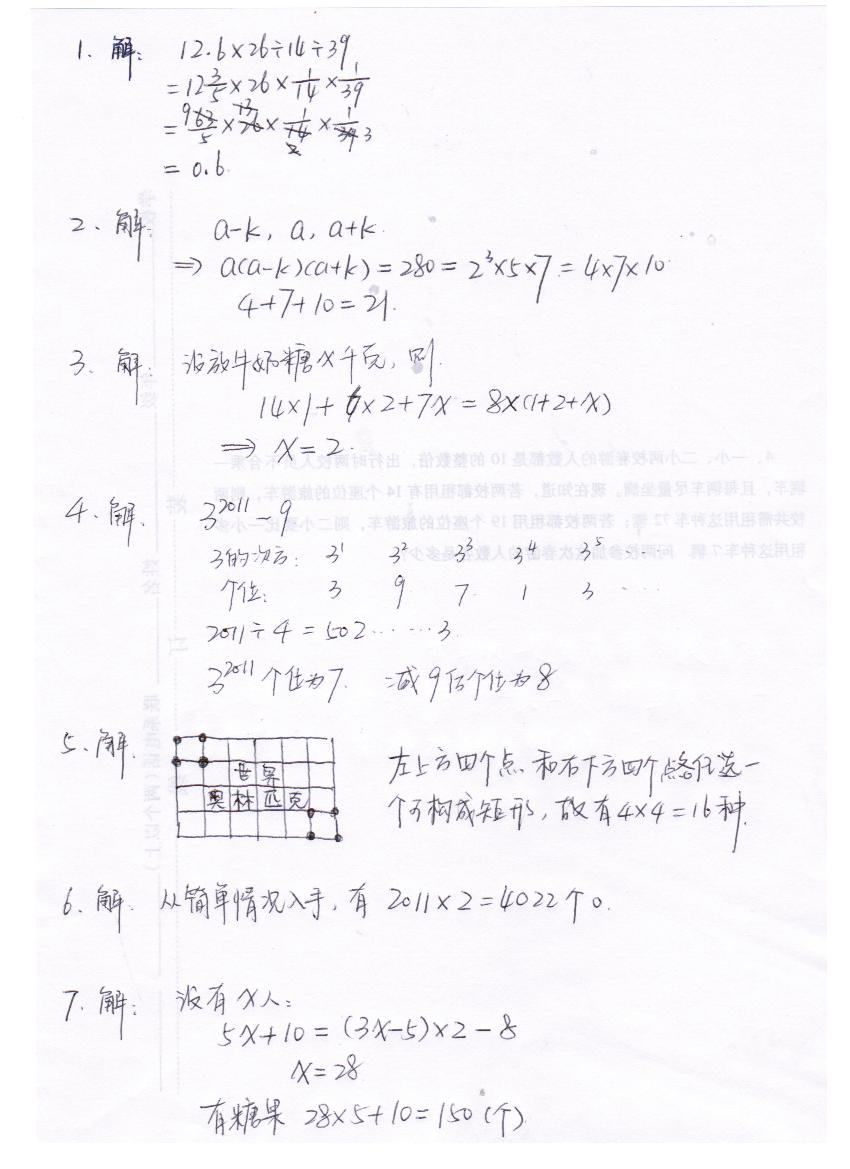 1. 解: 12.6×26÷14÷39
=12 3/5×26×1/14×1/39
=63/5×26×1/14×1/39
=0.6
2、解: a-k, a, a+k
⇒ a(a-k)(a+k)=280=2³×5×7=4×7×10
4+7+10=21.
3、解: 设放牛奶糖x千克,则
14×1+6×2+7x=8×(1+2+x)
⇒ x=2.
4、解. 3²⁰¹¹-9
3的次方: 3¹ 3² 3³ 3⁴ 3⁵ ……
个位: 3 9 7 1 3 …
2011÷4=502……3
3²⁰¹¹个位为7. 减9后个位为8
5、解. 左上方四个点和右下方四个点各任选一
世界
奥林匹克
个可构成矩形,故有4×4=16种.
6、解. 从简单情况入手,有2011×2=4022个0.
7. 解: 设有x人:
5x+10=(3x-5)×2-8
x=28
有糖果 28×5+10=150(个)
4、一小、二小两校春游的人数都是10的整数倍,出行时两校人员不合乘一
辆车,且每辆车尽量坐满。现在知道,若两校都租用有14个座位的旅游车,则两
校共需租用这种车72辆;若两校都租用19个座位的旅游车,则二小要比一小多
租用这种车7辆。问两校参加这次春游的人数各是多少?